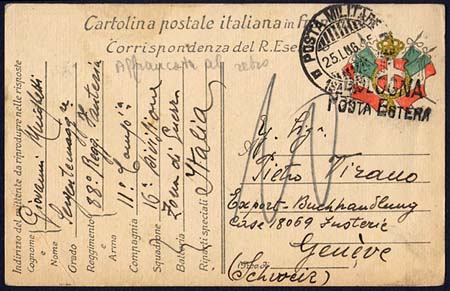 Cartolina postale italiana in f
Corrispondenza del R. Ese
Affrancata al retro
POSTA MILITARE
25.LUG.
BOLOGNA
POSTA ESTERA
Indirizzo del mittente da riprodurre nelle risposte
Cognome
e
Nome Giovanni
Grado Sergente maggre
Reggimento 88° Regg. Fanteria
e
Arma
Compagnia 11° Compia
Squadrone 16° Divisione
Batteria Zona di Guerra
Riparti speciali Italia
10
Pietro Tirano
Export-Buchhandlung
Case 18059
Genève
(Schweiz)